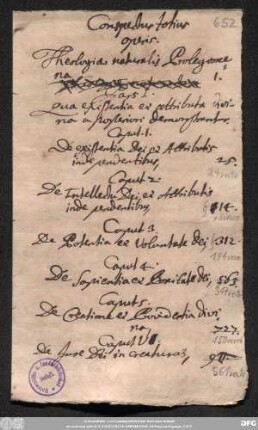 Conspectus totius
operis.
652
Theologiae naturalis Prolegome
na 1.
Pars I.
Qua existentia et attributa divi-
na a posteriori demonstrantur.
Caput. 1.
De existentia Dei et Attributis
inde pendentibus, 25.
Caput 2.
De Intellectu Dei, et Attributis
inde pendentibus,
Caput 3.
De Potentia et Voluntate dei, 312.
Caput 4.
De Sapientia et Bonitate dei, 563
Caput 5.
De Creatione et Providentia divi,
na, 727.
Caput VI.
De Jure Dei in creaturas,